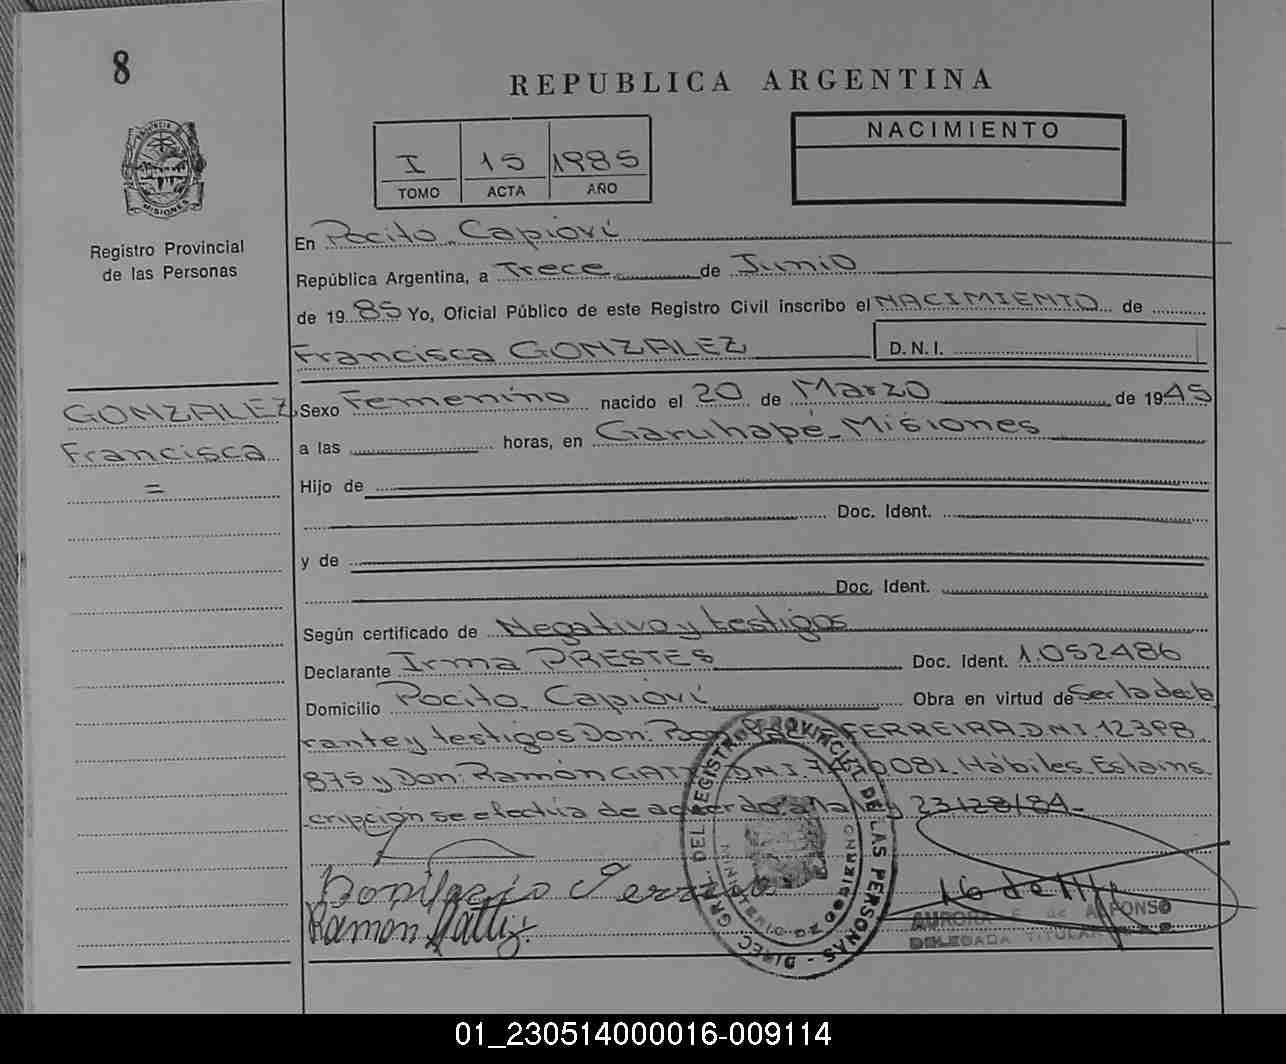 8
REPUBLICA ARGENTINA
I 15 1985
TOMO ACTA AÑO
NACIMIENTO
PROVINCIA DE
MISIONES
Registro Provincial
de las Personas
En Pocito Capioví
República Argentina, a Trece de Junio
de 1985 Yo, Oficial Público de este Registro Civil inscribo el NACIMIENTO de
Francisca GONZALEZ D.N.I.
GONZALEZ
Francisca
=
Sexo Femenino nacido el 20 de Marzo de 1945
a las horas, en Garuhapé-Misiones
Hijo de
Doc. Ident.
y de
Doc. Ident.
Según certificado de Negativo y testigos
Declarante Irma PRESTES Doc. Ident. 1.052486
Domicilio Pocito. Capioví Obra en virtud de Ser la decla
rante y testigos Don: FERREIRA.DNI.12398.
875 y Don: Ramón DNI. 081. Hábiles. Esta ins
cripción se efectúa de acuerdo a la Ley 23128/84-
Bonifacio Ferreira
Ramon
DIREC. GRAL. DEL REGISTRO PROVINCIAL DE LAS PERSONAS
AURORA E. de ALFONSO
DELEGADA TITULAR
01_230514000016-009114